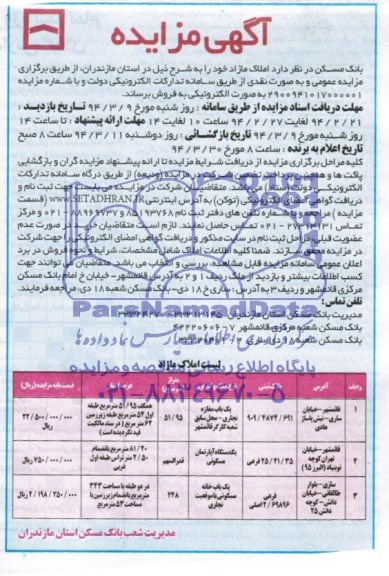 آگهی مزایده
بانک مسکن در نظر دارد املاک مازاد خود را به شرح ذیل در استان مازندران، از طریق برگزاری
مزایده عمومی و به صورت نقدی از طریق سامانه تدارکات الکترونیکی دولت و با شماره مزایده
۲۹۰۰۹۴۱۰۱۷۰۰۰۰۰۱ به صورت الکترونیکی به فروش برساند.
مهلت دریافت اسناد مزایده از طریق سامانه : روز شنبه مورخ ۹۴/۳/۹ تاریخ بازدید :
۹۴/۲/۲۱ لغایت ۹۴/۲/۲۷ ساعت ۱۰ لغایت ۱۴ مهلت ارائه پیشنهاد : تا ساعت ۱۴
روز شنبه مورخ ۹۴/۳/۹ تاریخ بازگشائی : روز دوشنبه ۹۴/۳/۱۱ ساعت ۸ صبح
تاریخ اعلام به برنده : ساعت ۸ مورخ ۹۴/۳/۳۰
کلیه مراحل برگزاری مزایده از دریافت شرایط مزایده تا ارائه پیشنهاد مزایده گران و بازگشایی
پاکت ها و همچنین پرداخت تضمین شرکت در مزایده (ودیعه) از طریق درگاه سامانه تدارکات
الکترونیکی دولت (ستاد) می باشد. متقاضیان شرکت در مزایده می بایست جهت ثبت نام و
دریافت گواهی امضای الکترونیکی (توکن) به آدرس اینترنتی WWW.SETADIRAN.IR (قسمت
مزایده) مراجعه و با شماره تلفن های دفتر ثبت نام ۸۵۱۹۳۷۶۸ و ۸۸۹۶۹۷۳۷ ۰۲۱ و مرکز
تماس ۰۲۱ تماس حاصل نمایند. لازم است متقاضیان در صورت عدم
عضویت قبلی مراحل ثبت نام در سایت مذکور و دریافت گواهی امضای الکترونیکی را جهت شرکت
در مزایده محقق سازند. ضمنا کلیه اطلاعات املاک شامل مشخصات، شرایط و نحوه فروش در برد
اعلان عمومی سامانه مزایده قابل مشاهده، بررسی و انتخاب می باشد. متقاضیان می توانند جهت
کسب اطلاعات بیشتر و بازدید از ملک ردیف ۱ و ۲ به آدرس: قائمشهر- خیابان امام بانک مسکن
مرکزی قائمشهر و ردیف ۳ به آدرس : ساری خ ۱۸ دی- بانک مسکن شعبه ۱۸ دی، مراجعه فرمایند.
تلفن تماس:
مدیریت بانک مسکن استان مازندران
بانک مسکن شعبه مرکزی قائمشهر ۷-۴۲۲۲۰۶۰۶
بانک مسکن شعبه ۱۸ دی ساری
ParsNamadData
پایگاه اطلاع رسانی مناقصه و مزایده
۰۲۱-۸۸۳۴۹۶۷۰-۵
لیست املاک مازاد
ردیف آدرس قیمت پایه مزایده (ریال)
۱ قائمشهر - خیابان ساری - نبش پاساژ هادی ۹۰۹/۴۸۷۴/۶۹۱ یک باب مغازه تجاری - محل سابق شعبه کارگر قائمشهر ۵۱/۹۵ همکف ۵۱/۹۵ مترمربع طبقه اول ۵۴ مترمربع طبقه زیرزمین ۶۲ متر مربع (در سند زیرزمین قید نگردیده است) ۲۲/۵۰۰/۰۰۰/۰۰۰ ریال
۲ قائمشهر - خیابان تهران کوچه نوبنیاد (البرز ۹۵) ۲۱/۳۵/۲۵ فرعی یکدستگاه آپارتمان مسکونی قدرالسهم ۸۱/۲۰ مترمربع بانضمام ۲/۵۰ متر تراس طبقه اول غربی ۷۵۰/۰۰۰/۰۰۰ ریال
۳ ساری - بلوار طالقانی - خیابان دانش - کوچه دانش ۲۵ فرعی ۲/۶۹۸۹۶ اصلی یک باب خانه مسکونی با موقعیت تجاری ۲۴۸ در دو طبقه با مساحت ۲۴۳ مترمربع بانضمام زیرزمین با مساحت ۵۳ مترمربع ۲/۱۹۸/۲۵۰/۰۰۰ ریال
مدیریت شعب بانک مسکن استان مازندران